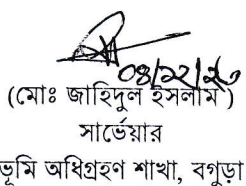 ০৪/১২/২৩
(মোঃ জাহিদুল ইসলাম)
সার্ভেয়ার
ভূমি অধিগ্রহণ শাখা, বগুড়া